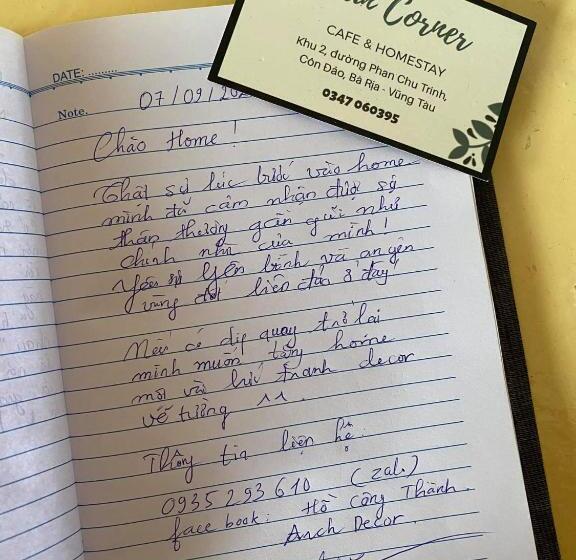 Corner
CAFE & HOMESTAY
Khu 2, đường Phan Chu Trinh,
Côn Đảo, Bà Rịa - Vũng Tàu
0347 060395
DATE: ........
Note.
07/09/
Chào Home!
Thật sự lúc bước vào home
mình đã cảm nhận được sự
thân thương gần gũi như
chính nhà của mình!
Yên bình và an yên
vùng đất liền đảo ở đây
Nếu có dịp quay trở lại
mình muốn tặng home
một vài bức tranh decor
vẽ tường ^^
Thông tin liên hệ
0935 293 610 (zalo)
facebook: Hồ Công Thành
Anch Decor.